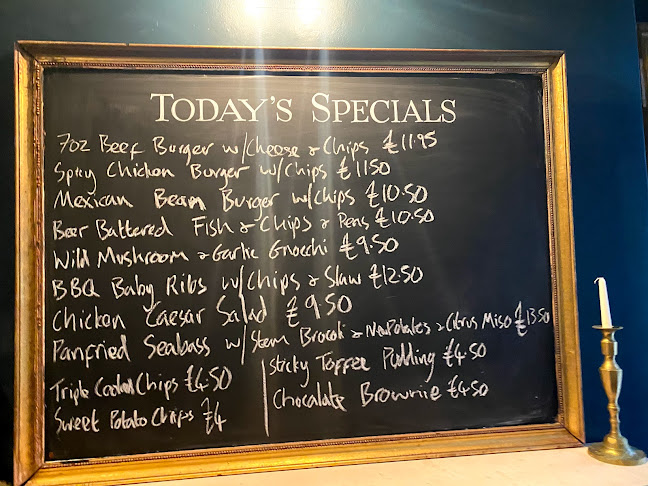 TODAY'S SPECIALS
7oz Beef Burger w/Cheese & Chips £11.95
Spicy Chicken Burger w/Chips £11.50
Mexican Bean Burger w/chips £10.50
Beer Battered Fish & Chips & Peas £10.50
Wild Mushroom & Garlic Gnocchi £9.50
BBQ Baby Ribs w/Chips & Slaw £12.50
Chicken Caesar Salad £9.50
Panfried Seabass w/ Stem Brocoli & New Potatoes & Citrus Miso £13.50
Triple Cooked Chips £4.50
Sweet Potato Chips £4
Sticky Toffee Pudding £4.50
Chocolate Brownie £4.50